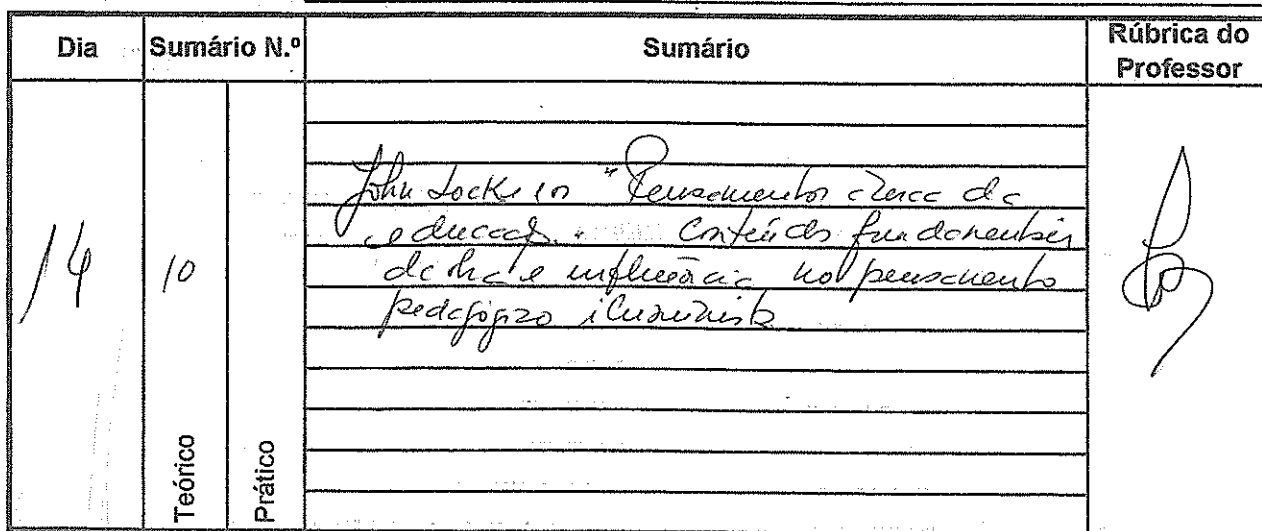 Dia Sumário N.º Sumário Rúbrica do Professor
14 10
John Locke in "Pensamentos acerca da
educação". Conteúdos fundamentais
da obra e influência no pensamento
pedagógico iluminista
Teórico
Prático